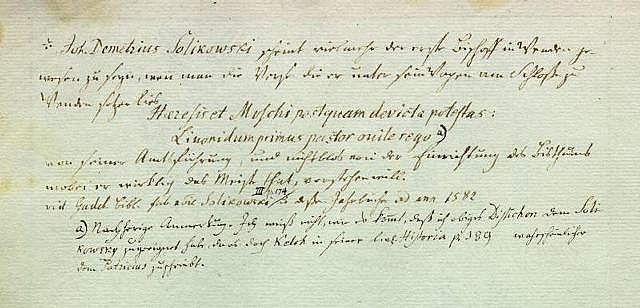 * Joh. Demetrius Solikowski scheint vielmehr der erste Bischoff in Wenden ge-
wesen zu seyn, wenn man die Verse die er unter sein Wapen am Schlosse zu
Wenden setzen lies
Haeresis et Moschi postquam devicta potestas:
Livonidum primus pastor ovile rego a)
von seiner Amtsführung, und nicht blos von der Einrichtung des Bisthums
wobei er wirklich das Meiste that, verstehen will.
Gadeb. Bibl. Solikowski III p. 174 Jahrbuch ad ann 1582
a) Nachherige Anmerkung. Ich weiß nicht, wie es kömmt, daß ich obiges Distichon dem Soli-
kowsky zugeeignet habe, da es doch Kelch in seiner lief. Historia p. 189 wahrscheinlicher
dem Patricius zuschreibt.